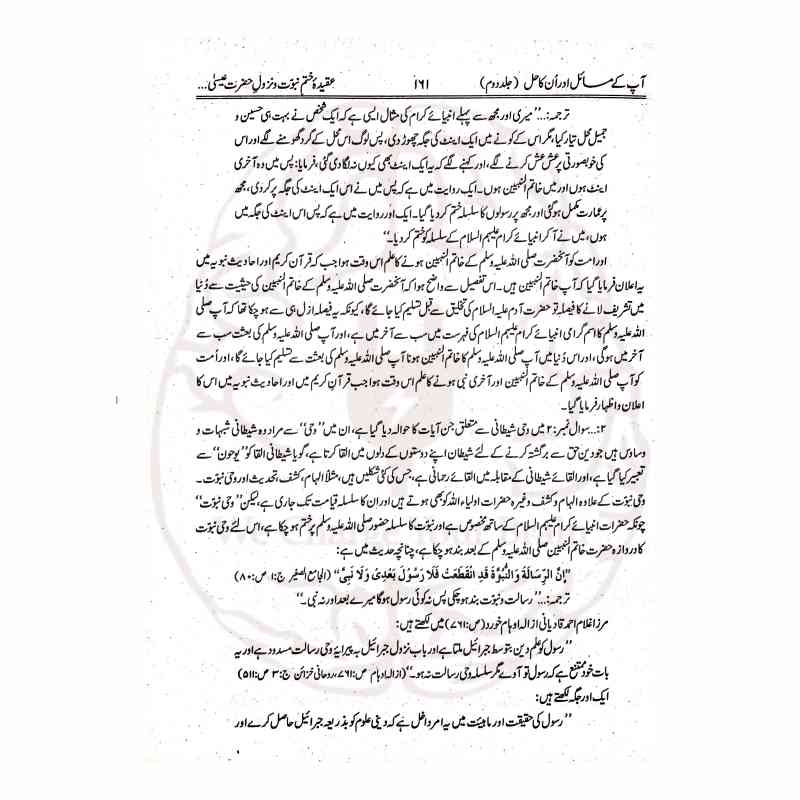 آپ کے مسائل اور اُن کا حل (جلد دوم) ۱۶۱ عقیدۂ ختم نبوّت و نزولِ حضرت عیسیٰ...
ترجمہ:... ”میری اور مجھ سے پہلے انبیائے کرام کی مثال ایسی ہے کہ ایک شخص نے بہت ہی حسین و
جمیل محل تیار کیا، مگر اس کے کونے میں ایک اینٹ کی جگہ چھوڑ دی، پس لوگ اس محل کے گرد گھومنے لگے اور اس
کی خوبصورتی پر عش عش کرنے لگے، اور کہنے لگے کہ یہ ایک اینٹ بھی کیوں نہ لگادی گئی، فرمایا: پس میں وہ آخری
اینٹ ہوں اور میں خاتم النبیین ہوں۔ ایک روایت میں ہے کہ پس میں نے اس ایک اینٹ کی جگہ پُر کردی، مجھ
پر عمارت مکمل ہوگئی اور مجھ پر رسولوں کا سلسلہ ختم کردیا گیا۔ ایک اور روایت میں ہے کہ پس اس اینٹ کی جگہ میں
ہوں، میں نے آکر انبیائے کرام علیہم السلام کے سلسلہ کو ختم کردیا۔“
اور امت کو آنحضرت صلی اللہ علیہ وسلم کے خاتم النبیین ہونے کا علم اس وقت ہوا جب کہ قرآن کریم اور احادیث نبویہ میں
یہ اعلان فرمایا گیا کہ آپ خاتم النبیین ہیں۔ اس تفصیل سے واضح ہوا کہ آنحضرت صلی اللہ علیہ وسلم کے خاتم النبیین کی حیثیت سے دُنیا
میں تشریف لانے کا فیصلہ تو حضرت آدم علیہ السلام کی تخلیق سے قبل تسلیم کیا جائے گا، کیونکہ یہ فیصلہ ازل ہی سے ہوچکا تھا کہ آپ صلی
اللہ علیہ وسلم کا اسم گرامی انبیائے کرام علیہم السلام کی فہرست میں سب سے آخر میں ہے، اور آپ صلی اللہ علیہ وسلم کی بعثت سب سے
آخر میں ہوگی، اور اس دُنیا میں آپ صلی اللہ علیہ وسلم کا خاتم النبیین ہونا آپ صلی اللہ علیہ وسلم کی بعثت سے تسلیم کیا جائے گا، اور اُمت
کو آپ صلی اللہ علیہ وسلم کے خاتم النبیین اور آخری نبی ہونے کا علم اس وقت ہوا جب قرآن کریم میں اور احادیث نبویہ میں اس کا
اعلان و اظہار فرمایا گیا۔
۲:... سوال نمبر:۲ میں وحی شیطانی سے متعلق جن آیات کا حوالہ دیا گیا ہے، ان میں ”وحی“ سے مراد وہ شیطانی شبہات و
وساوس ہیں جو دینِ حق سے برگشتہ کرنے کے لئے شیطان اپنے دوستوں کے دلوں میں القا کرتا ہے، گویا شیطانی القا کو ”یوحون“ سے
تعبیر کیا گیا ہے، اور القائے شیطانی کے مقابلہ میں القائے رحمانی ہے، جس کی کئی شکلیں ہیں، مثلاً: الہام، کشف، تحدیث اور وحی نبوّت۔
وحی نبوّت کے علاوہ الہام و کشف وغیرہ حضرات اولیاء اللہ کو بھی ہوتے ہیں اور ان کا سلسلہ قیامت تک جاری ہے، لیکن ”وحی نبوّت“
چونکہ حضرات انبیائے کرام علیہم السلام کے ساتھ مخصوص ہے اور نبوّت کا سلسلہ حضور صلی اللہ علیہ وسلم پر ختم ہوچکا ہے، اس لئے وحی نبوّت
کا دروازہ حضرت خاتم النبیین صلی اللہ علیہ وسلم کے بعد بند ہوچکا ہے، چنانچہ حدیث میں ہے:
”اِنَّ الرِّسَالَةَ وَالنُّبُوَّةَ قَدِ انْقَطَعَتْ فَلَا رَسُوْلَ بَعْدِیْ وَلَا نَبِیَّ“ (الجامع الصغیر ج:۱ ص:۸۰)
ترجمہ:... ”رسالت و نبوّت بند ہوچکی پس نہ کوئی رسول ہوگا میرے بعد اور نہ نبی۔“
مرزا غلام احمد قادیانی ازالہ اوہام خورد (ص:۷۶۱) میں لکھتے ہیں:
”رسول کو علم دین بتوسط جبرائیل ملتا ہے اور باب نزول جبرائیل بہ پیرایۂ وحی رسالت مسدود ہے اور یہ
بات خود ممتنع ہے کہ رسول تو آوے مگر سلسلہ وحی رسالت نہ ہو۔“ (ازالہ اوہام ص:۷۶۱، روحانی خزائن ج:۳ ص:۵۱۱)
ایک اور جگہ لکھتے ہیں:
”رسول کی حقیقت اور ماہیت میں یہ امر داخل ہے کہ دینی علوم کو بذریعہ جبرائیل حاصل کرے اور